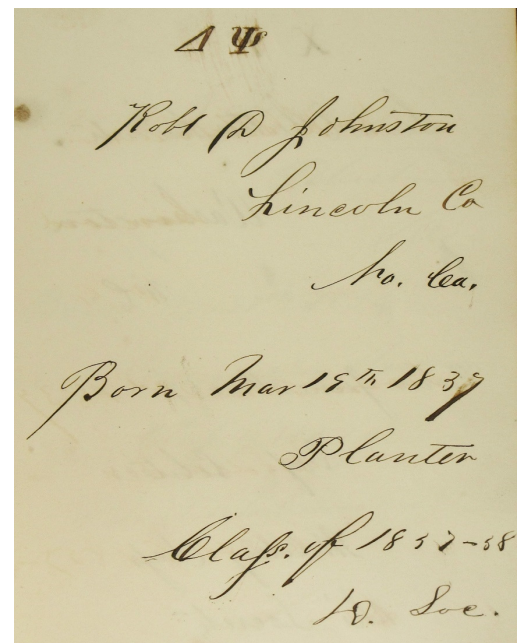 Δ Ψ
Robt D Johnston
Lincoln Co
No. Ca.
Born Mar 19th 1837
Planter
Class. of 1857-58
D. Soc.